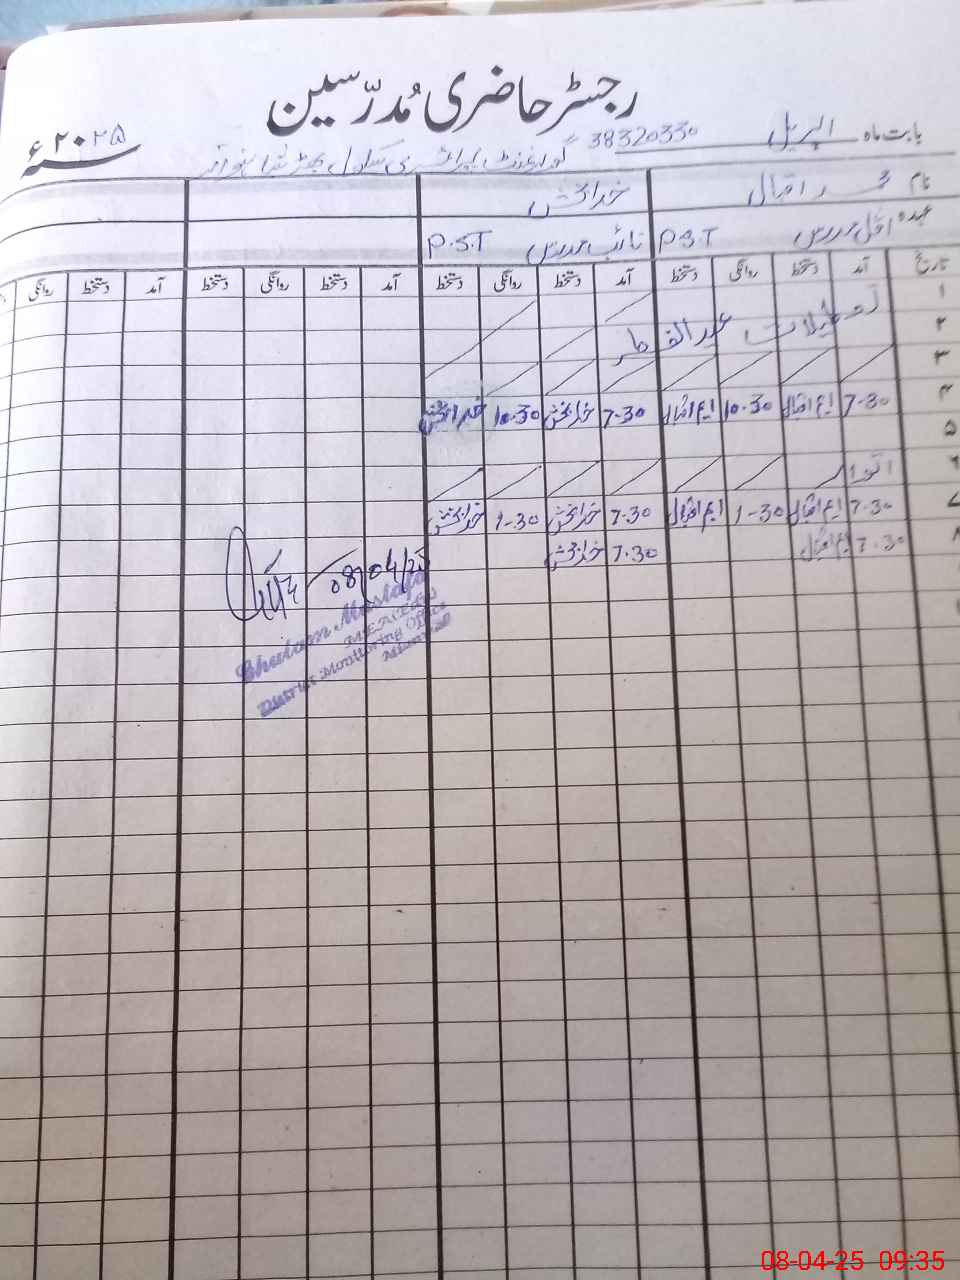 رجسٹر حاضری مُدرّسین
بابت ماہ اپریل 38320330 گورنمنٹ پرائمری سکول ۲۰۲۵ء
نام محمد اقبال خدا بخش
عہدہ اول مدرس P.S.T نائب مدرس P.S.T
تاریخ آمد دستخط روانگی دستخط آمد دستخط روانگی دستخط آمد دستخط روانگی دستخط آمد دستخط روانگی
۱
۲ تعطیلات عید الفطر
۳
۴ 7-30 ایم اقبال 10-30 ایم اقبال 7-30 خدا بخش 10-30 خدا بخش
۵
۶ اتوار
۷ 7-30 ایم اقبال 1-30 ایم اقبال 7-30 خدا بخش 1-30 خدا بخش
۸ 7-30 ایم اقبال 7-30 خدا بخش
08/04/25
Ghulam Mustafa
District Monitoring Office
08-04-25 09:35